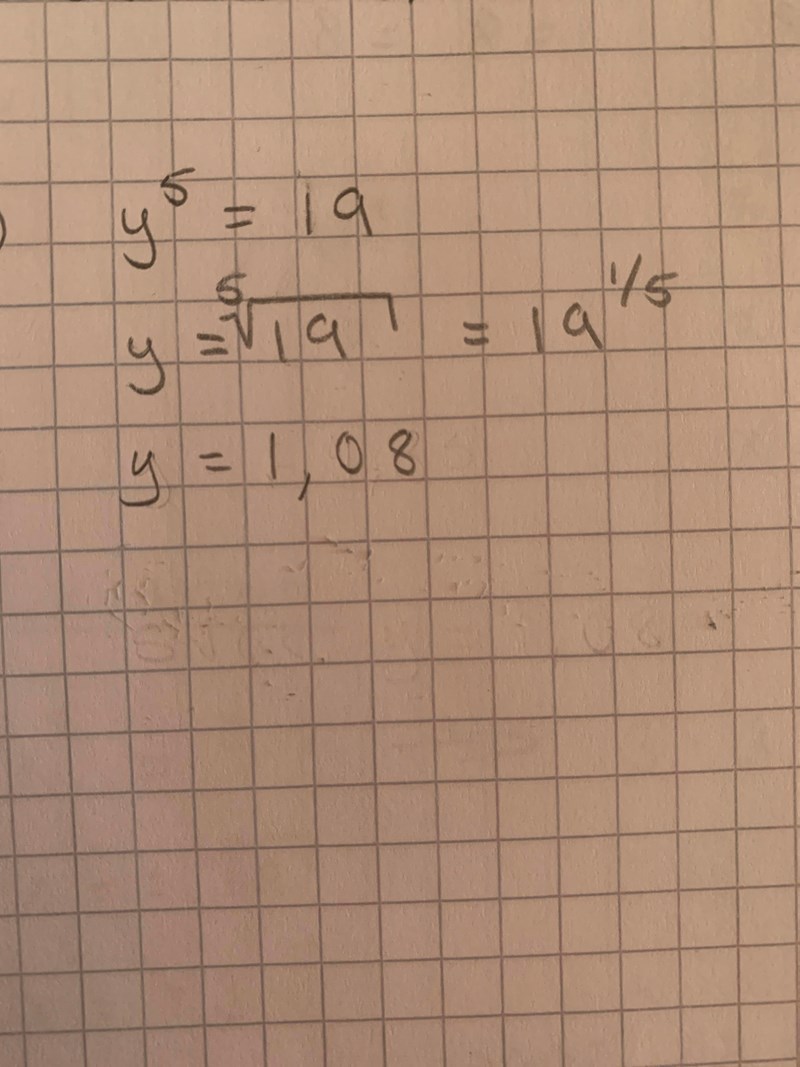 y⁵ = 19
y = ⁵√19 = 19^1/5
y = 1,08